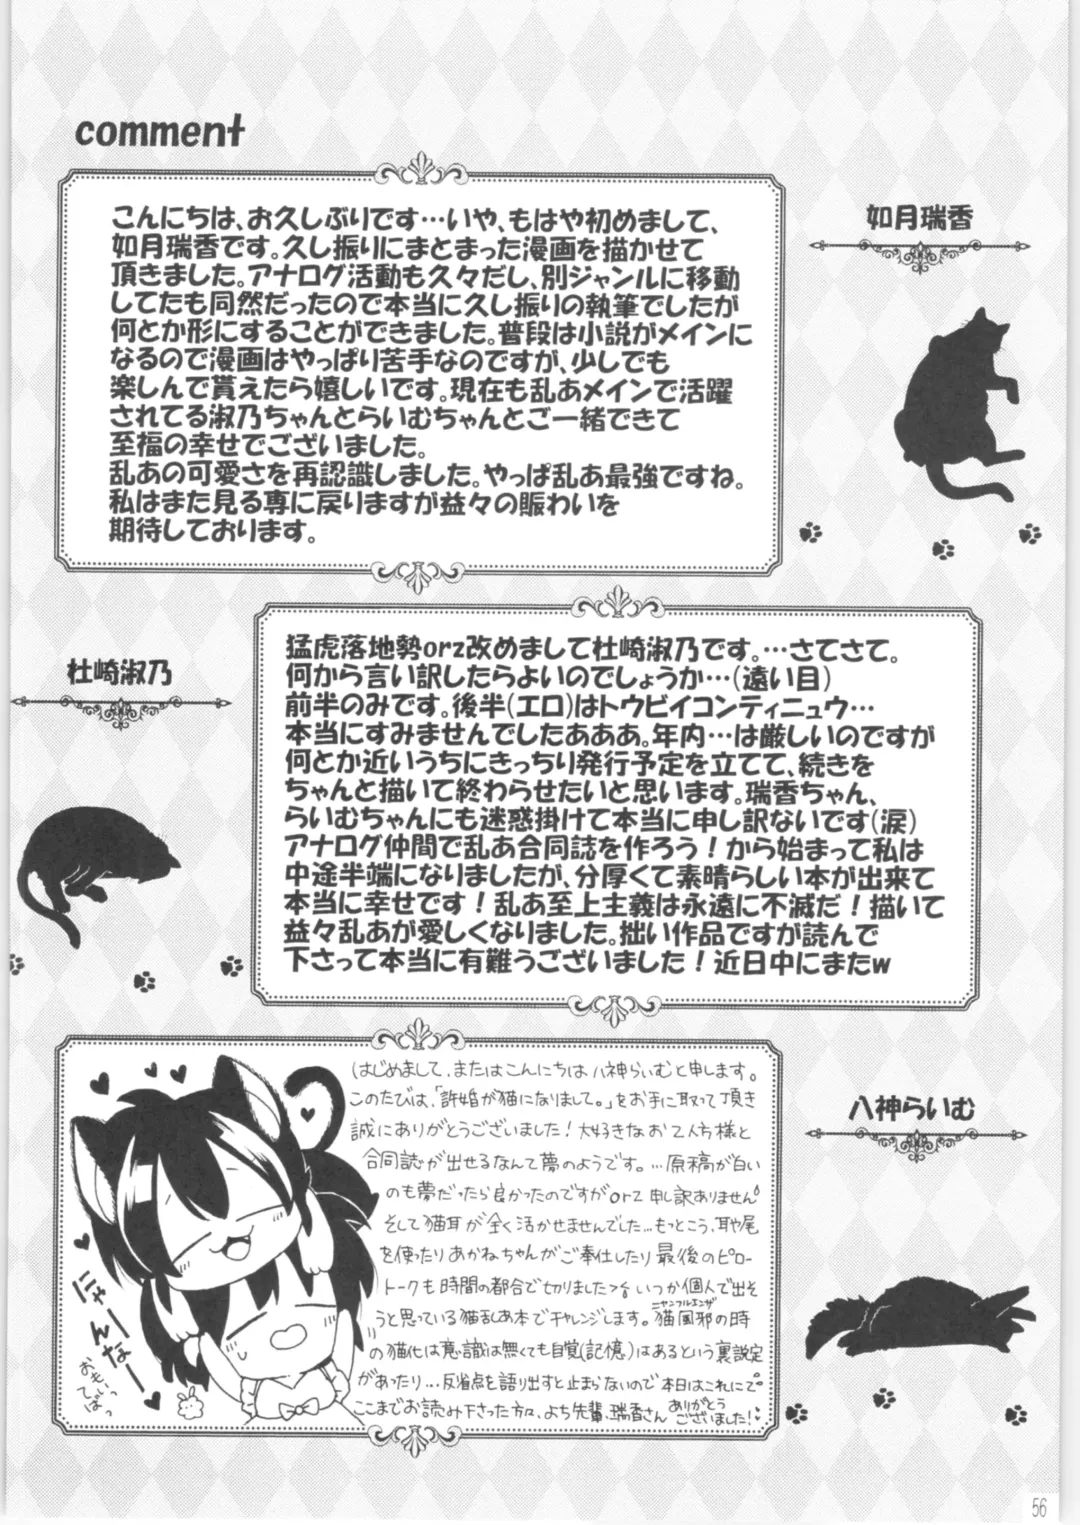 comment
こんにちは、お久しぶりです…いや、もはや初めまして、
如月瑞香です。久し振りにまとまった漫画を描かせて
頂きました。アナログ活動も久々だし、別ジャンルに移動
してたも同然だったので本当に久し振りの執筆でしたが
何とか形にすることができました。普段は小説がメインに
なるので漫画はやっぱり苦手なのですが、少しでも
楽しんで貰えたら嬉しいです。現在も乱あメインで活躍
されてる淑乃ちゃんとらいむちゃんとご一緒できて
至福の幸せでございました。
乱あの可愛さを再認識しました。やっぱ乱あ最強ですね。
私はまた見る専に戻りますが益々の賑わいを
期待しております。
如月瑞香
杜崎淑乃
猛虎落地勢orz改めまして杜崎淑乃です。…さてさて。
何から言い訳したらよいのでしょうか…(遠い目)
前半のみです。後半(エロ)はトゥビイコンティニュウ…
本当にすみませんでしたあああ。年内…は厳しいのですが
何とか近いうちにきっちり発行予定を立てて、続きを
ちゃんと描いて終わらせたいと思います。瑞香ちゃん、
らいむちゃんにも迷惑掛けて本当に申し訳ないです(涙)
アナログ仲間で乱あ合同誌を作ろう！から始まって私は
中途半端になりましたが、分厚くて素晴らしい本が出来て
本当に幸せです！乱あ至上主義は永遠に不滅だ！描いて
益々乱あが愛しくなりました。拙い作品ですが読んで
下さって本当に有難うございました！近日中にまたw
はじめまして、またはこんにちは八神らいむと申します。
このたびは、「許婚が猫になりまして。」をお手に取って頂き
誠にありがとうございました！大好きなお2人方様と
合同誌が出せるなんて夢のようです。…原稿が白い
のも夢だったら良かったのですがorz 申し訳ありません
そして猫耳が全く活かせませんでした…もっとこう、耳や尾
を使ったりあかねちゃんがご奉仕したり最後のピロー
トークも時間の都合で切りました いつか個人で出そ
うと思っている猫乱あ本でチャレンジします。猫風邪の時
ニャンフルエンザ
の猫化は意識は無くても自覚(記憶)はあるという裏設定
があったり…反省点を語り出すと止まらないので本日はこれにて
ここまでお読み下さった方々、よち先輩、瑞香さん ありがとう
ございました！
にゃーんなー
おもいっ
てばっ
八神らいむ
56